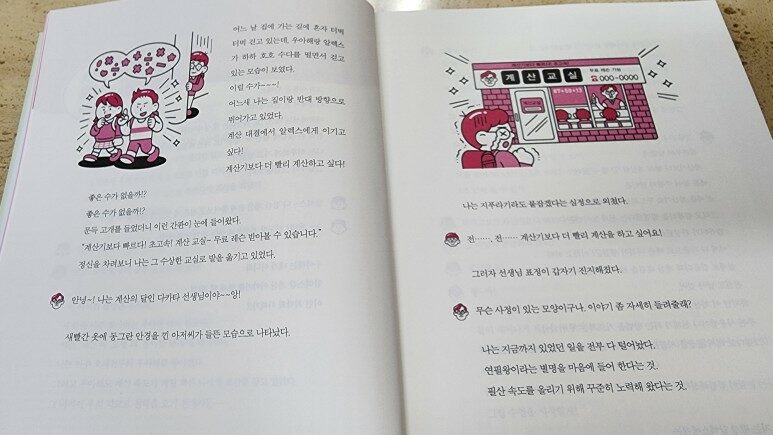 어느 날 집에 가는 길에 혼자 터벅
터벅 걷고 있는데, 우아해랑 알렉스
가 하하 호호 수다를 떨면서 걷고
있는 모습이 보였다.
이럴 수가~~~!
어느새 나는 집이랑 반대 방향으로
뛰어가고 있었다.
계산 대결에서 알렉스에게 이기고
싶다!
계산기보다 더 빨리 계산하고 싶다!
좋은 수가 없을까!?
좋은 수가 없을까!?
문득 고개를 들었더니 이런 간판이 눈에 들어왔다.
“계산기보다 빠르다! 초고속! 계산 교실~ 무료 레슨 받아볼 수 있습니다.”
정신을 차려보니 나는 그 수상한 교실로 발을 옮기고 있었다.
안녕~! 나는 계산의 달인 다카타 선생님이야~~앙!
새빨간 옷에 동그란 안경을 낀 아저씨가 들뜬 모습으로 나타났다.
계산기보다 빠르다! 초고속!
계산교실
무료 레슨 가능
☎000-0000
계산교실
87+59+13
나는 지푸라기라도 붙잡겠다는 심정으로 외쳤다.
전……, 전…… 계산기보다 더 빨리 계산을 하고 싶어요!
그러자 선생님 표정이 갑자기 진지해졌다.
무슨 사정이 있는 모양이구나. 이야기 좀 자세히 들려줄래?
나는 지금까지 있었던 일을 전부 다 털어놨다.
연필왕이라는 별명을 마음에 들어 한다는 것.
필산 속도를 올리기 위해 꾸준히 노력해 왔다는 것.